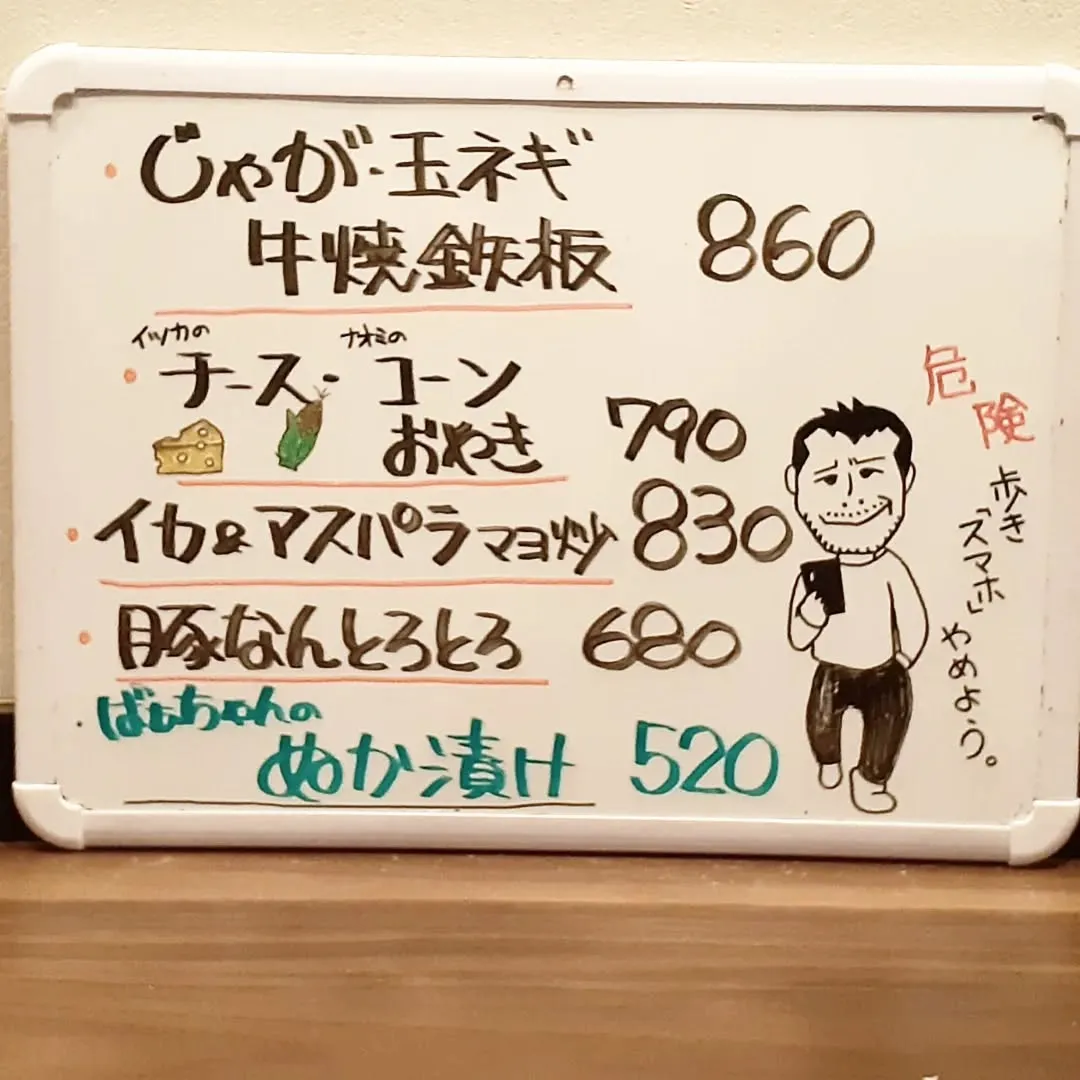 ・じゃが・玉ネギ
牛焼鉄板 860
イツカの ナオミの
・チーズ・コーン
おやき 790
・イカ&アスパラマヨ炒 830
・豚なんとろとろ 680
・ばぁちゃんの
ぬか漬け 520
危険
歩き「スマホ」やめよう。